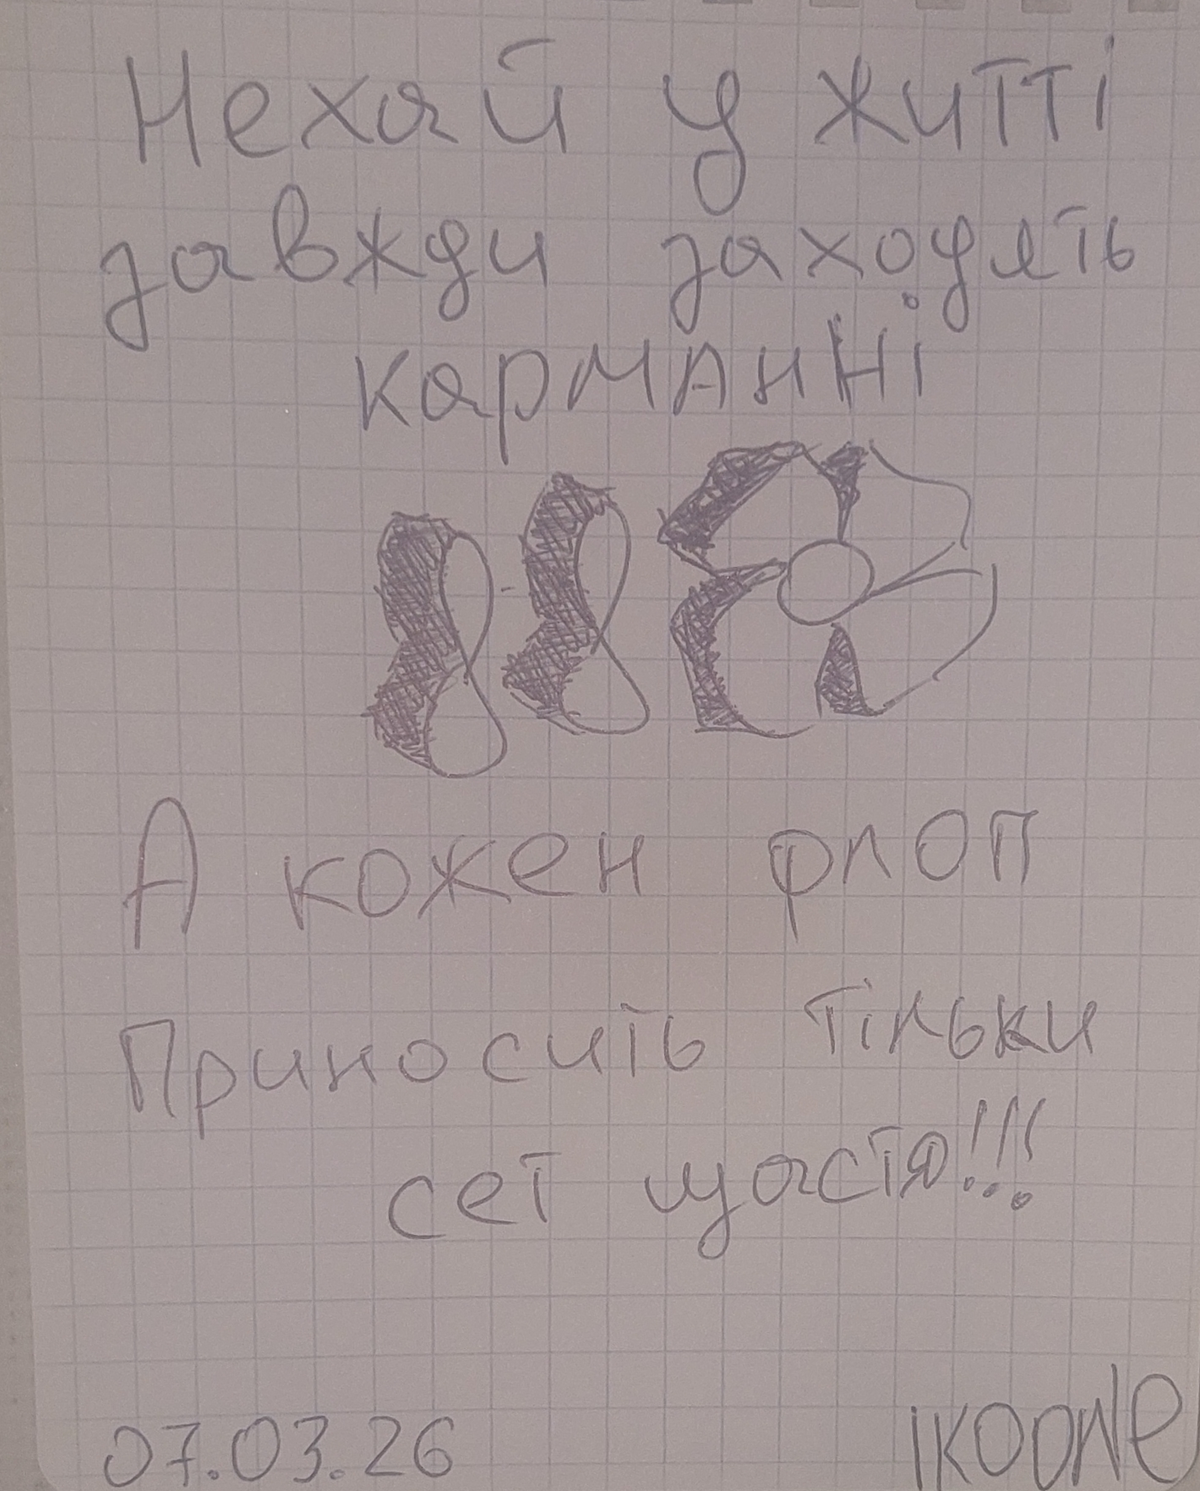 Нехай у житті
завжди заходять
карманні
8-8
А кожен флоп
Приносить тільки
сет щастя!!!
07.03.26 IKOONE